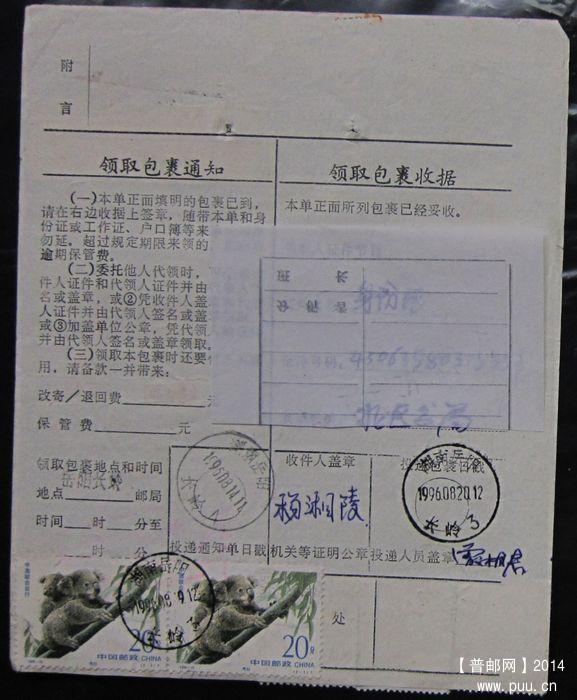 附
言
领取包裹通知
(一)本单正面填明的包裹已到,
请在右边收据上签章,随带本单和身
份证或工作证、户口簿等来
勿延。超过规定期限来领的,
逾期保管费。
(二)委托他人代领时,
件人证件和代领人证件并由
名或盖章,或②凭收件人盖
人证件并由代领人签名或盖
或③加盖单位公章,凭代领
并由代领人签名或盖章领取。
(三)领取本包裹时还要
用,请备款一并带来:
改寄/退回费 元
保管费 元
领取包裹地点和时间
地点 邮局
时间 时 分至
时 分
投递通知单日戳
领取包裹收据
本单正面所列包裹已经妥收。
班 长
身份证
收件人盖章
杨湘陵
机关等证明公章
投递包裹日戳
湖南岳阳
1996.08.20.12
长岭
投递人员盖章
湖南岳阳
1996.08.14.14
长岭
湖南岳阳
1996.08.19.12
长岭
处
20分
中国邮政 CHINA
20分
中国邮政 CHINA
【普邮网】2014
www.puu.cn